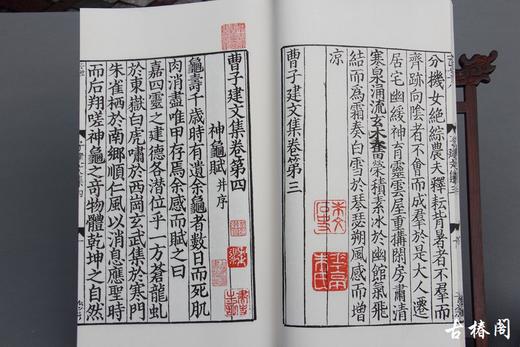 分機女絕綜農夫釋耘背暑者不羣而
齊跡向陰者不會而成羣於是大人遷
居宅幽綏神育靈雲屋重構閑房肅清
寒泉涌流玄木奮榮積素冰於幽館氣飛
結而爲霜奏白雪於琴瑟朔風感而增
凉
曹子建文集卷第三
曹子建文集卷第四
神龜賦并序
龜壽千歲時有遺余龜者數日而死肌
肉消盡唯甲存焉余感而賦之曰
嘉四靈之建德各潛位乎一方蒼龍虬
於東嶽白虎嘯於西岡玄武集於寒門
朱雀栖於南鄉順仁風以消息應聖時
而后翔嗟神龜之奇物體乾坤之自然
古椿閣